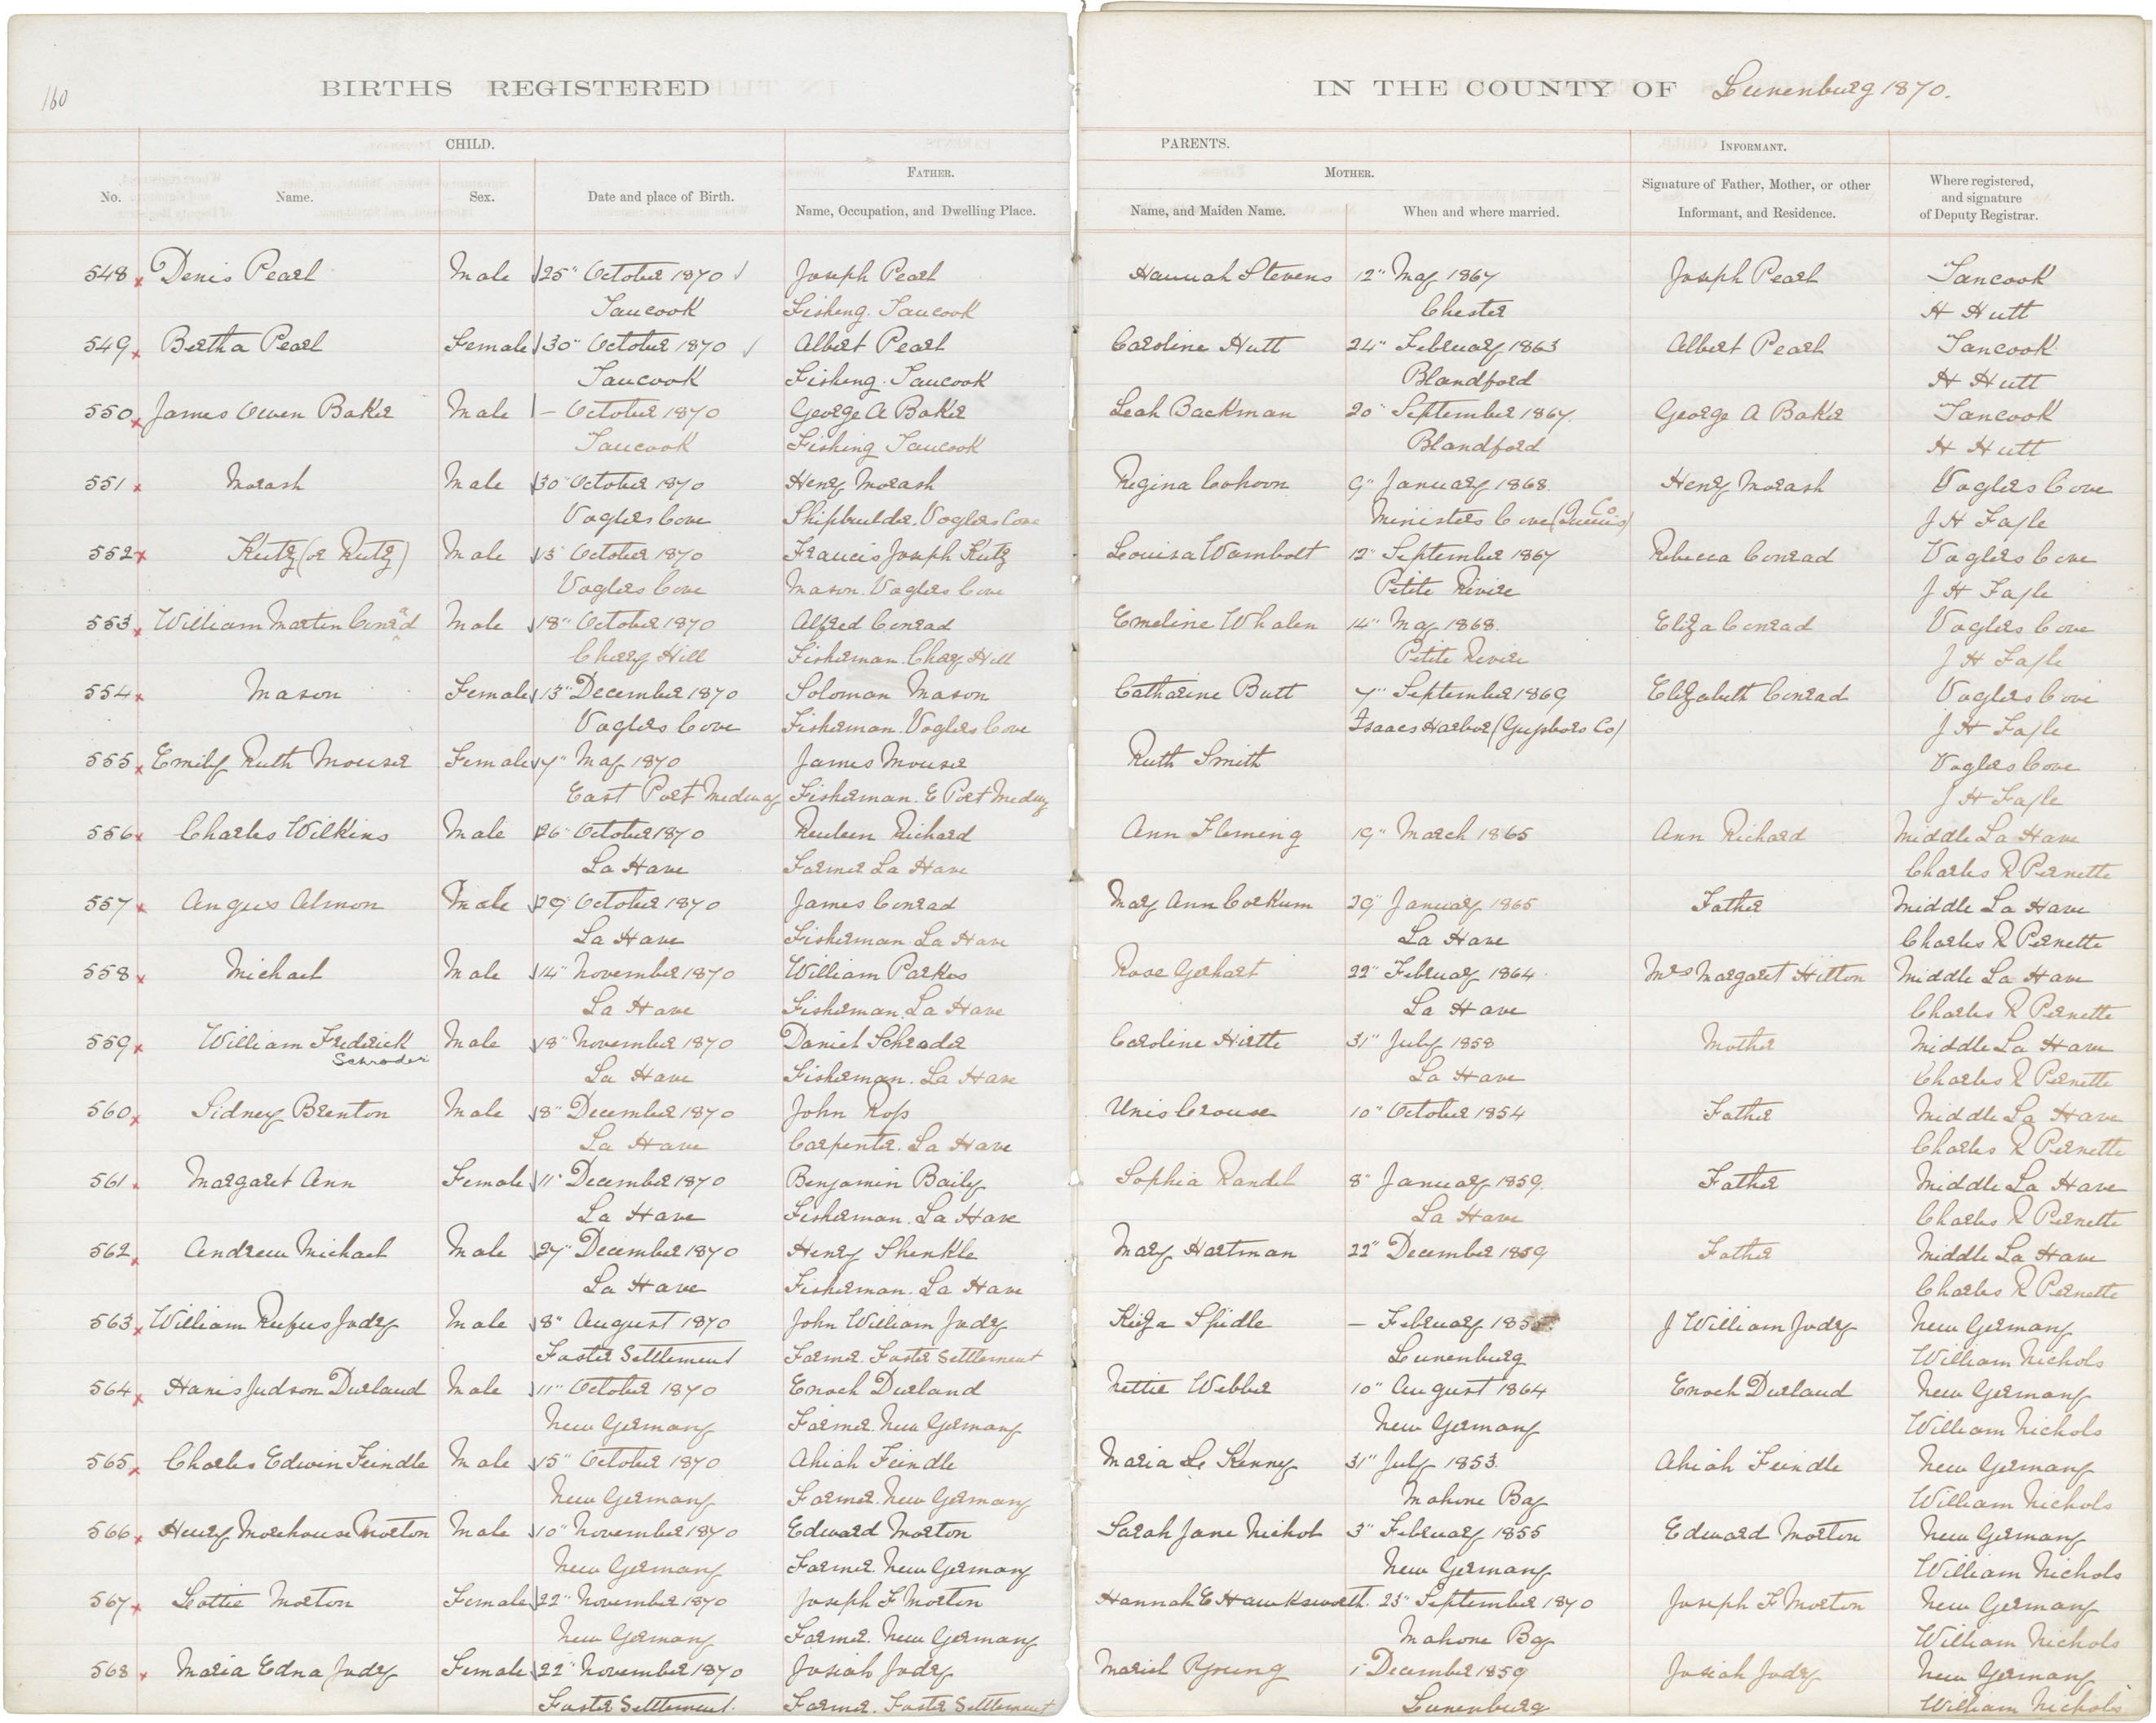 160
BIRTHS REGISTERED IN THE COUNTY OF Lunenburg 1870.
CHILD. PARENTS. INFORMANT.
FATHER. MOTHER.
No. Name. Sex. Date and place of Birth. Name, Occupation, and Dwelling Place. Name, and Maiden Name. When and where married. Signature of Father, Mother, or other Informant, and Residence. Where registered, and signature of Deputy Registrar.
548 Denis Pearl Male 25" October 1870 Joseph Pearl Hannah Stevens 12" May 1867 Joseph Pearl Tancook
Tancook Fishing. Tancook Chester H Hutt
549 Bertha Pearl Female 30" October 1870 Albert Pearl Caroline Hutt 24" February 1863 Albert Pearl Tancook
Tancook Fishing. Tancook Blandford H Hutt
550 James Owen Baker Male – October 1870 George A Baker Leah Backman 20" September 1867. George A Baker Tancook
Tancook Fishing Tancook Blandford H Hutt
551 Morash Male 30" October 1870 Henry Morash Regina Cohoon 9" January 1868. Henry Morash Voglers Cove
Voglers Cove Shipbuilder. Voglers Cove Ministers Cove (Queens Co) J H Fayle
552 Kutz (or Rutz) Male 13" October 1870 Francis Joseph Kutz Louisa Wambolt 12" September 1867 Rebecca Conrad Voglers Cove
Voglers Cove Mason. Voglers Cove Petite Riviere J H Fayle
553 William Martin Conrad Male 18" October 1870 Alfred Conrad Emeline Whalen 14" May 1868. Eliza Conrad Voglers Cove
Cherry Hill Fisherman. Cherry Hill Petite Riviere J H Fayle
554 Mason Female 13" December 1870 Soloman Mason Catharine Butt 7" September 1869 Elizabeth Conrad Voglers Cove
Voglers Cove Fisherman. Voglers Cove Isaacs Harbor (Guysboro Co) J H Fayle
555 Emily Ruth Mouser Female 7" May 1870 James Mouser Ruth Smith Voglers Cove
East Port Medway Fisherman. E Port Medway J H Fayle
556 Charles Wilkins Male 26" October 1870 Reuben Richard Ann Fleming 19" March 1865 Ann Richard Middle La Have
La Have Farmer La Have Charles R Pernette
557 Angus Almon Male 29" October 1870 James Conrad Mary Ann Corkum 29" January 1865 Father Middle La Have
La Have Fisherman La Have La Have Charles R Pernette
558 Michael Male 14" November 1870 William Parkes Rose Gerhart 22" February 1864 Mrs Margaret Hilton Middle La Have
La Have Fisherman. La Have La Have Charles R Pernette
559 William Frederick Male 18" November 1870 Daniel Schrader Caroline Hirtte 31" July 1858 Mother Middle La Have
Schroder La Have Fisherman. La Have La Have Charles R Pernette
560 Sidney Brenton Male 8" December 1870 John Ross Unis Crouse 10" October 1854 Father Middle La Have
La Have Carpenter. La Have Charles R Pernette
561 Margaret Ann Female 11" December 1870 Benjamin Baily Sophia Randel 8" January 1859. Father Middle La Have
La Have Fisherman. La Have La Have Charles R Pernette
562 Andrew Michael Male 27" December 1870 Henry Shenkle Mary Hartman 22" December 1859 Father Middle La Have
La Have Fisherman. La Have Charles R Pernette
563 William Rufus Jodry Male 8" August 1870 John William Jodry Kiza Spidle – February J William Jodry New Germany
Foster Settlement Farmer. Foster Settlement Lunenburg William Nichols
564 Hanis Judson Durland Male 11" October 1870 Enoch Durland Nettie Webber 10" August 1864 Enoch Durland New Germany
New Germany Farmer. New Germany New Germany William Nichols
565 Charles Edwin Feindle Male 15" October 1870 Ahiah Feindle Maria Kenney 31" July 1853. Ahiah Feindle New Germany
New Germany Farmer. New Germany Mahone Bay William Nichols
566 Henry Morehouse Morton Male 10" November 1870 Edward Morton Sarah Jane Nichol 3" February 1855 Edward Morton New Germany
New Germany Farmer. New Germany New Germany William Nichols
567 Lottie Morton Female 22" November 1870 Joseph F Morton Hannah E Hawksworth. 23" September 1870 Joseph F Morton New Germany
New Germany Farmer. New Germany Mahone Bay William Nichols
568 Maria Edna Jodry Female 22" November 1870 Josiah Jodry Young 1" December 1859 Josiah Jodry New Germany
Foster Settlement. Farmer. Foster Settlement Lunenburg William Nichols